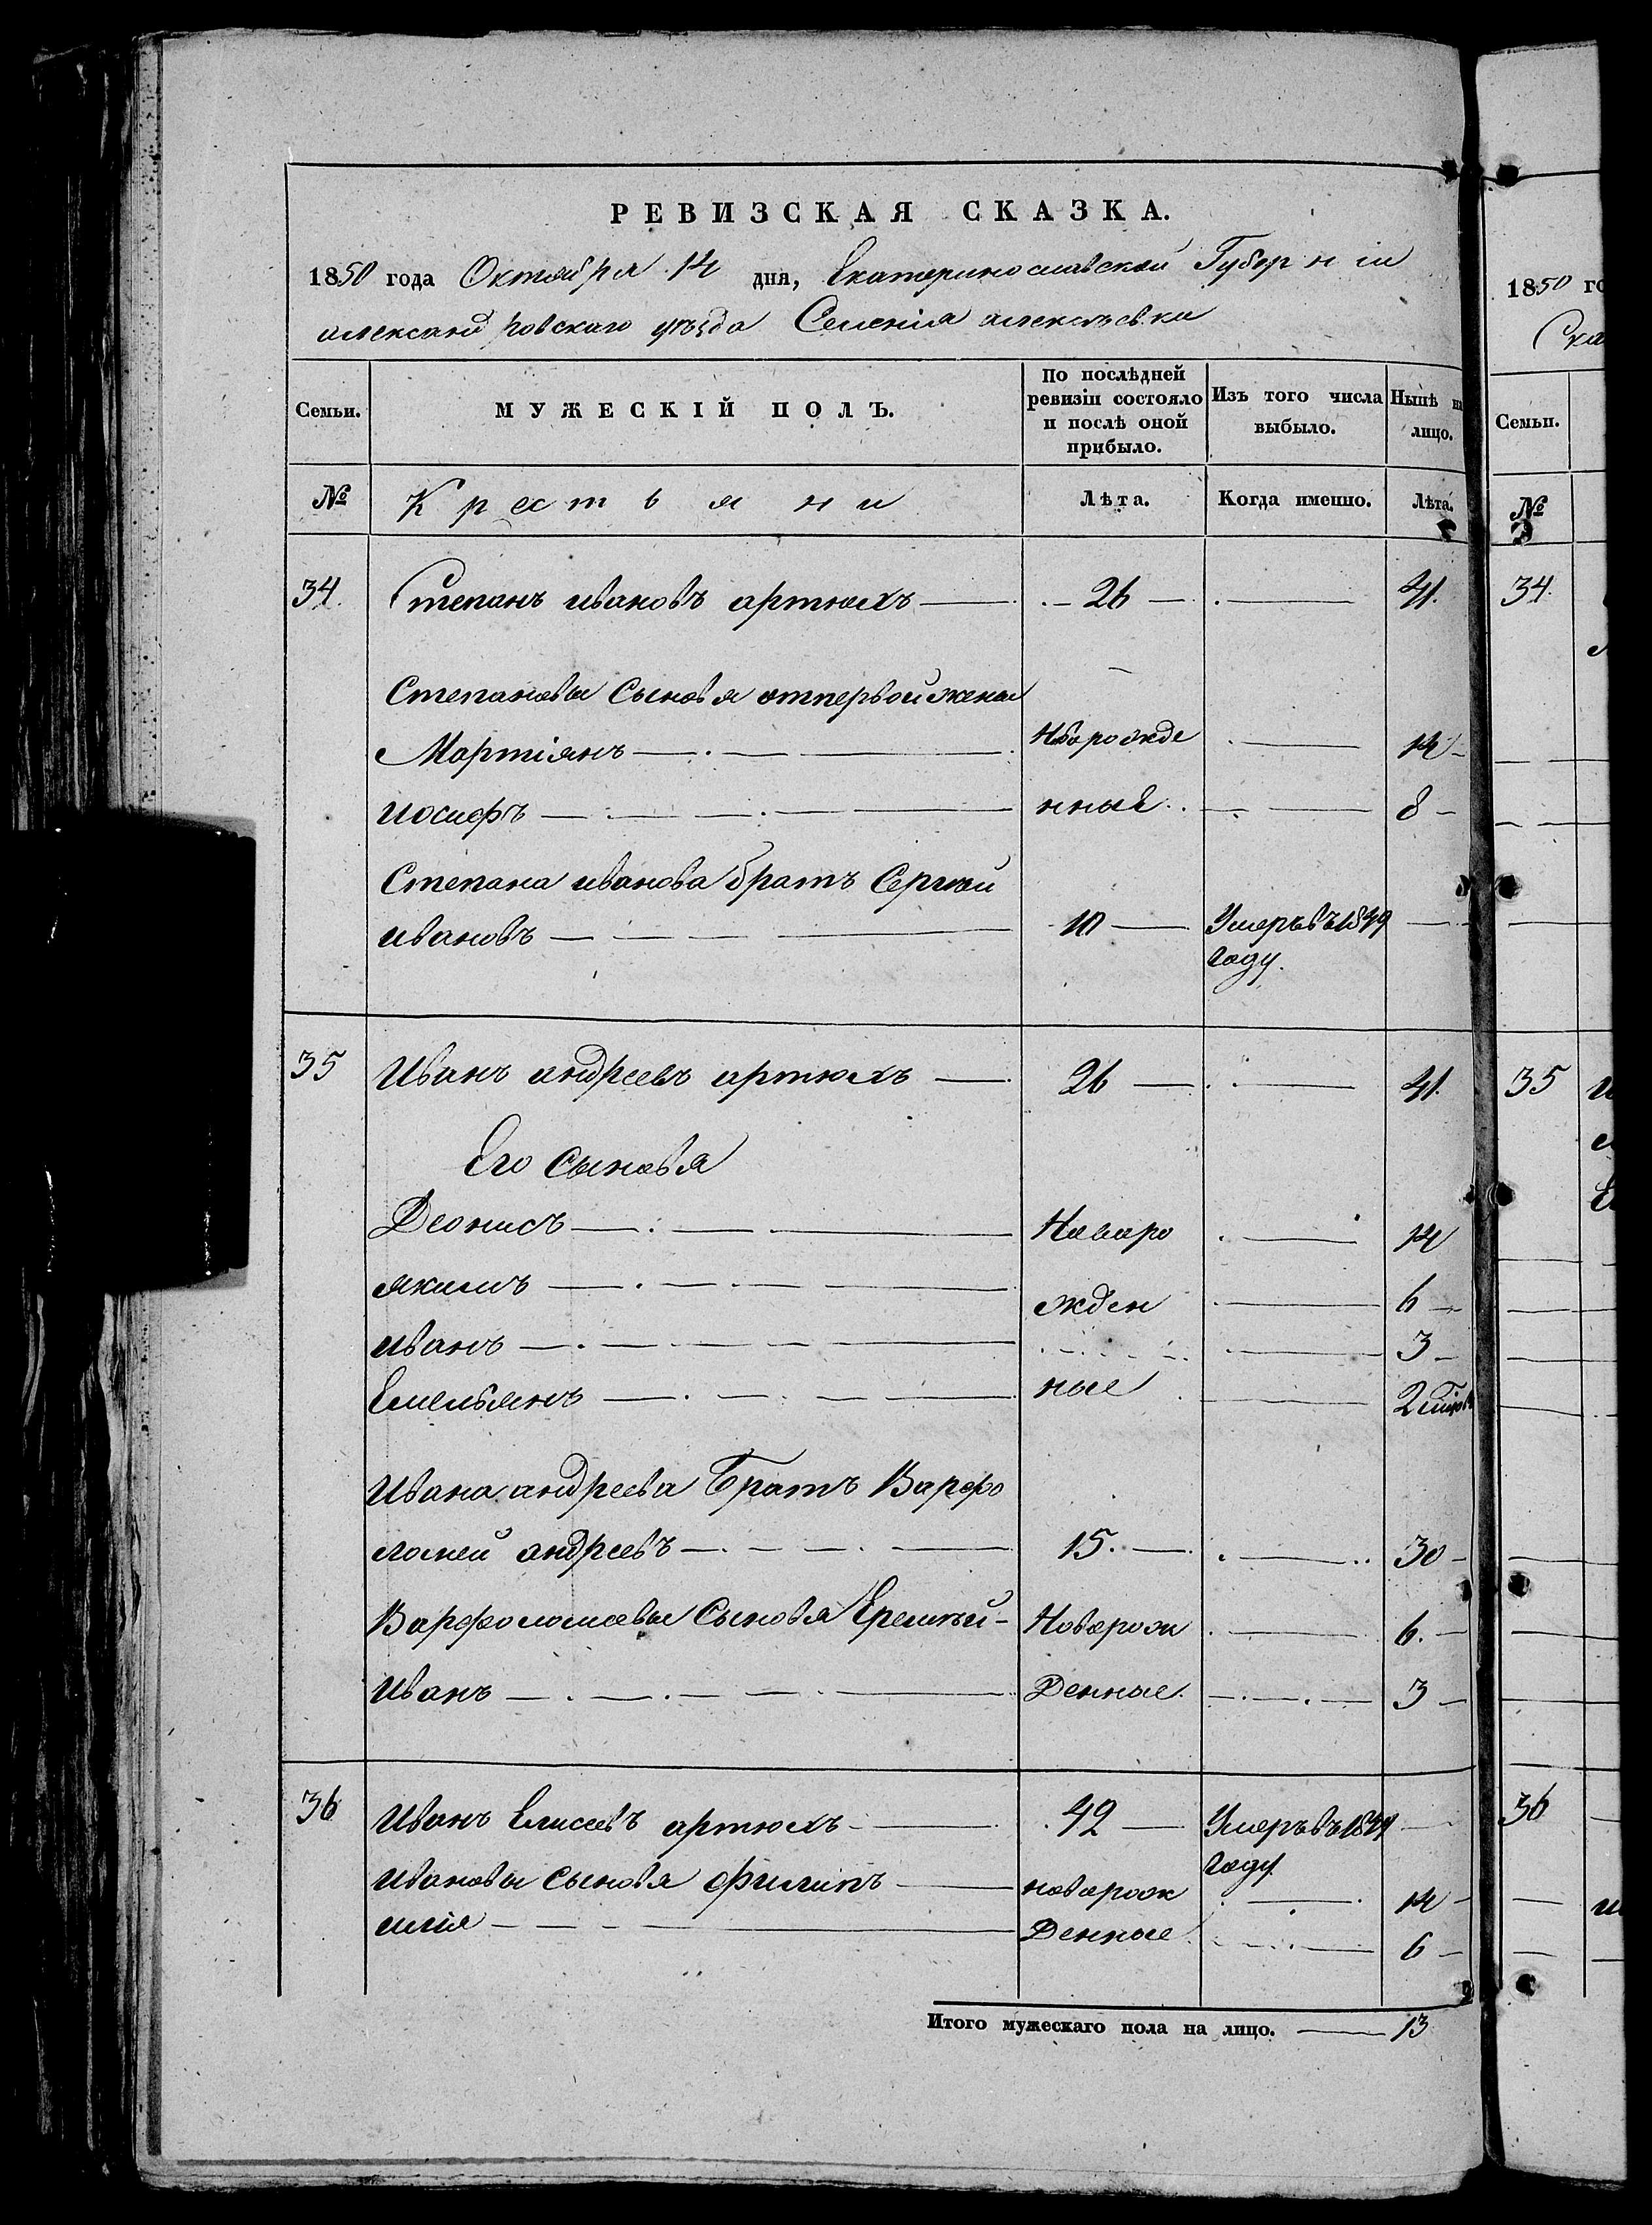 РЕВИЗСКАЯ СКАЗКА.
1850 года Октября 14 дня, Екатеринославской Губернiи
александровскаго уѣзда Селенiя алексѣевки
Семьи. МУЖЕСКIЙ ПОЛЪ. По послѣдней ревизiи состояло и послѣ оной прибыло. Изъ того числа выбыло. Нынѣ на лицо.
№ Крестьяни Лѣта. Когда именно. Лѣта.
34. Степанъ ивановъ артюхъ — 26 — — 41.
Степановы Сыновя отпервой жены
Мартiянъ — новорожде — 14
иосифъ — нные — 8
Степана иванова братъ Сергѣй
ивановъ — 10 — Умеръ въ 1849 —
Году.
35 Иванъ андреевъ артюхъ — 26 — — 41.
Его сыновя
Деонисъ — Новоро — 14
якимъ — жден — 6
иванъ — — 3
Емельянъ — ные — 2
Ивана андреева Братъ Варфо
ломей андреевъ — 15. — — 30
Варфоломеевы Сыновя Еремѣй - Новорож — 6.
Иванъ — Денные — 3
36 Иванъ Елисеевъ артюхъ — 42 — Умеръ въ —
Году
ивановы сыновя филипъ — новорож — 14
илiя — Денные — 6
Итого мужескаго пола на лицо. — 13
1850 го
Ска
Семьи.
№
34.
35
36